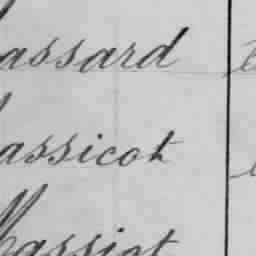 assard
assicot
Massiot